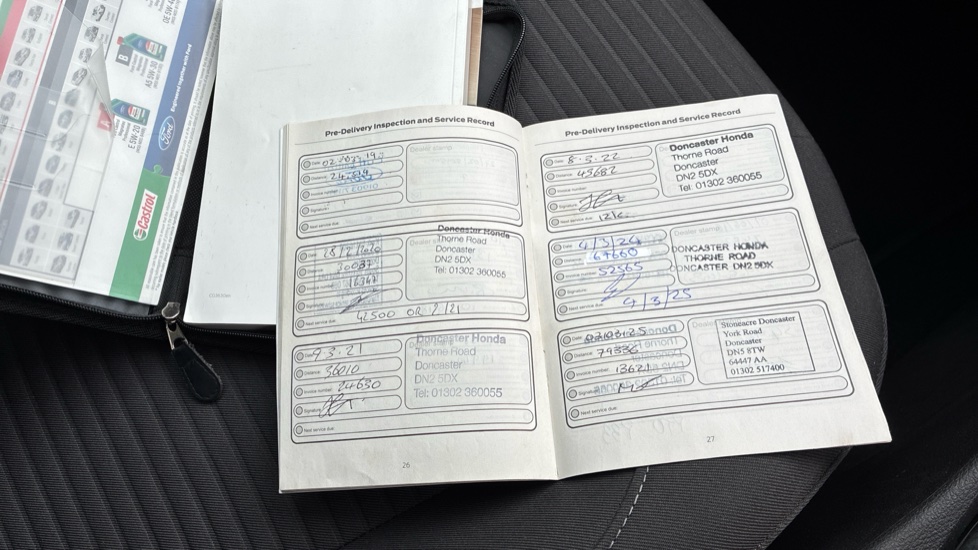 Engineered together with Ford
Ford
Castrol
Pre-Delivery Inspection and Service Record
Date
Distance
24,519
Invoice number
Signature
Next service due:
Date
Distance
30037
Invoice number
Signature
Next service due:
42500 OR 2/21
Doncaster Honda
Thorne Road
Doncaster
DN2 5DX
Tel: 01302 360055
Date 9.3.21
Distance 36010
Invoice number 24650
Signature
Next service due:
Doncaster Honda
Thorne Road
Doncaster
DN2 5DX
Tel: 01302 360055
26
Pre-Delivery Inspection and Service Record
Date 8.3.22
Distance 45682
Invoice number
Signature
Next service due:
Doncaster Honda
Thorne Road
Doncaster
DN2 5DX
Tel: 01302 360055
Date 4/3/24
Distance 67660
Invoice number 52565
Signature
Next service due: 4/3/25
Dealer stamp:
DONCASTER HONDA
THORNE ROAD
DONCASTER DN2 5DX
Date 07/03/25
Distance 79336
Invoice number 13621
Signature
Next service due:
Stoneacre Doncaster
York Road
Doncaster
DN5 8TW
64447 AA
01302 517400
27